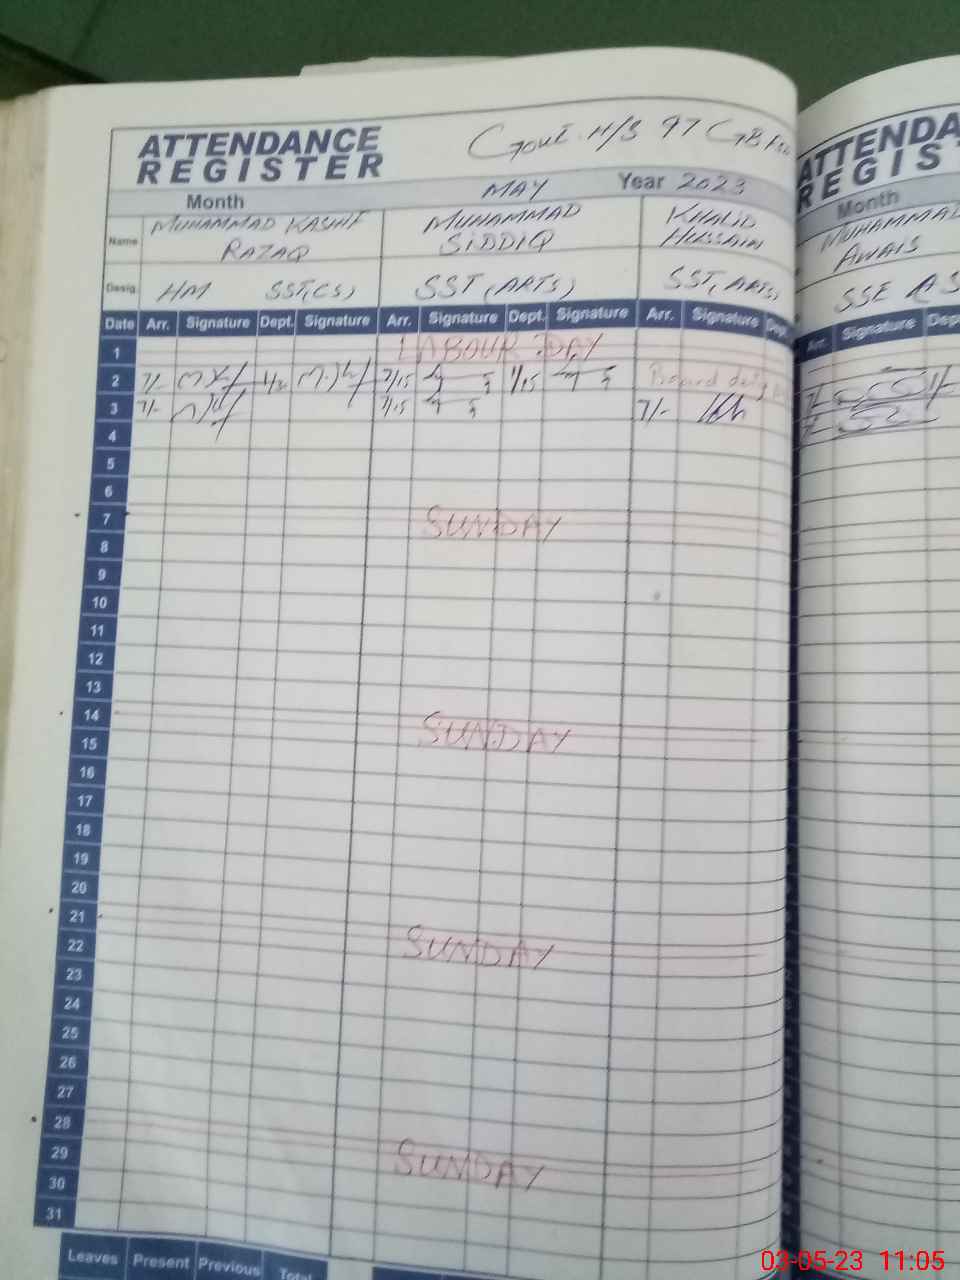 ATTENDANCE
REGISTER
Govt. H/S 97 GB
Month MAY Year 2023
Name MUHAMMAD KASHIF RAZAQ MUHAMMAD SIDDIQ KHALID HUSSAIN
Desig. HM SST(CS) SST(ARTS) SST(ARTS)
Date Arr. Signature Dept. Signature Arr. Signature Dept. Signature Arr. Signature Dept
1 LABOUR DAY
2 7/- 7/15 1/15
3 7/- 7/15 7/-
4
5
6
7 SUNDAY
8
9
10
11
12
13
14 SUNDAY
15
16
17
18
19
20
21
22 SUNDAY
23
24
25
26
27
28
29 SUNDAY
30
31
Leaves Present Previous Total
ATTENDA
REGIS
Month
MUHAMMAD
AWAIS
SSE
Arr. Signature Dep
03-05-23 11:05